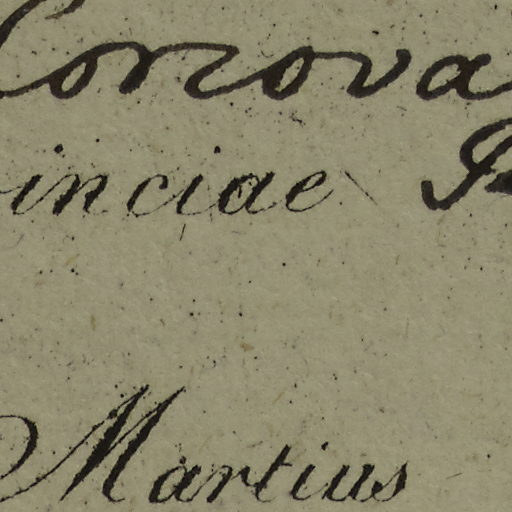 Corcova
inciae
Martius